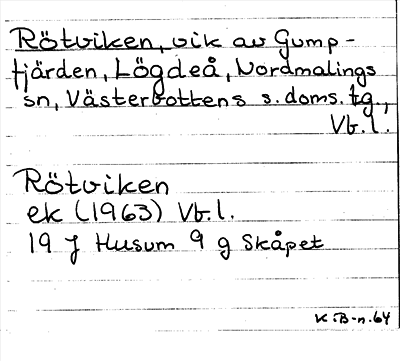 Rötviken, vik av Gump-
fjärden, Lögdeå, Nordmalings
sn, Västerbottens s. doms. tg.,
Vb. l.
Rötviken
ek (1963) Vb. l.
19 J Husum 9 g Skåpet
K:B-n. 64